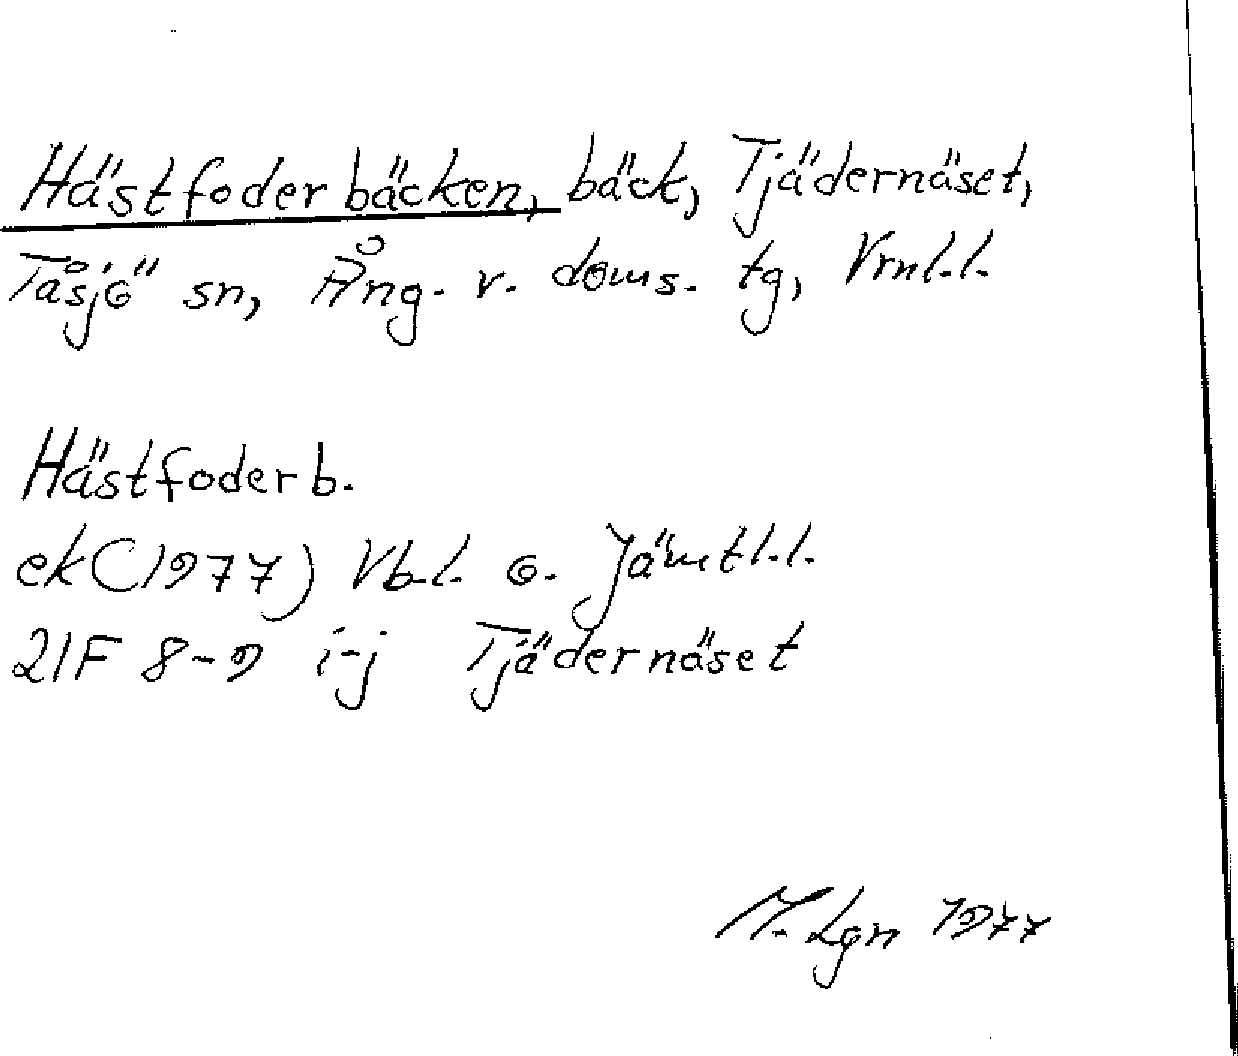 Hästfoderbäcken, bäck, Tjädernäset,
Tåsjö sn, Ång. v. doms. tg, Vrnl.l.
Hästfoderb.
ek (1977) Vb.l. o. Jämtl.l.
21F 8-9 i-j Tjädernäset
M. Lgn 1977